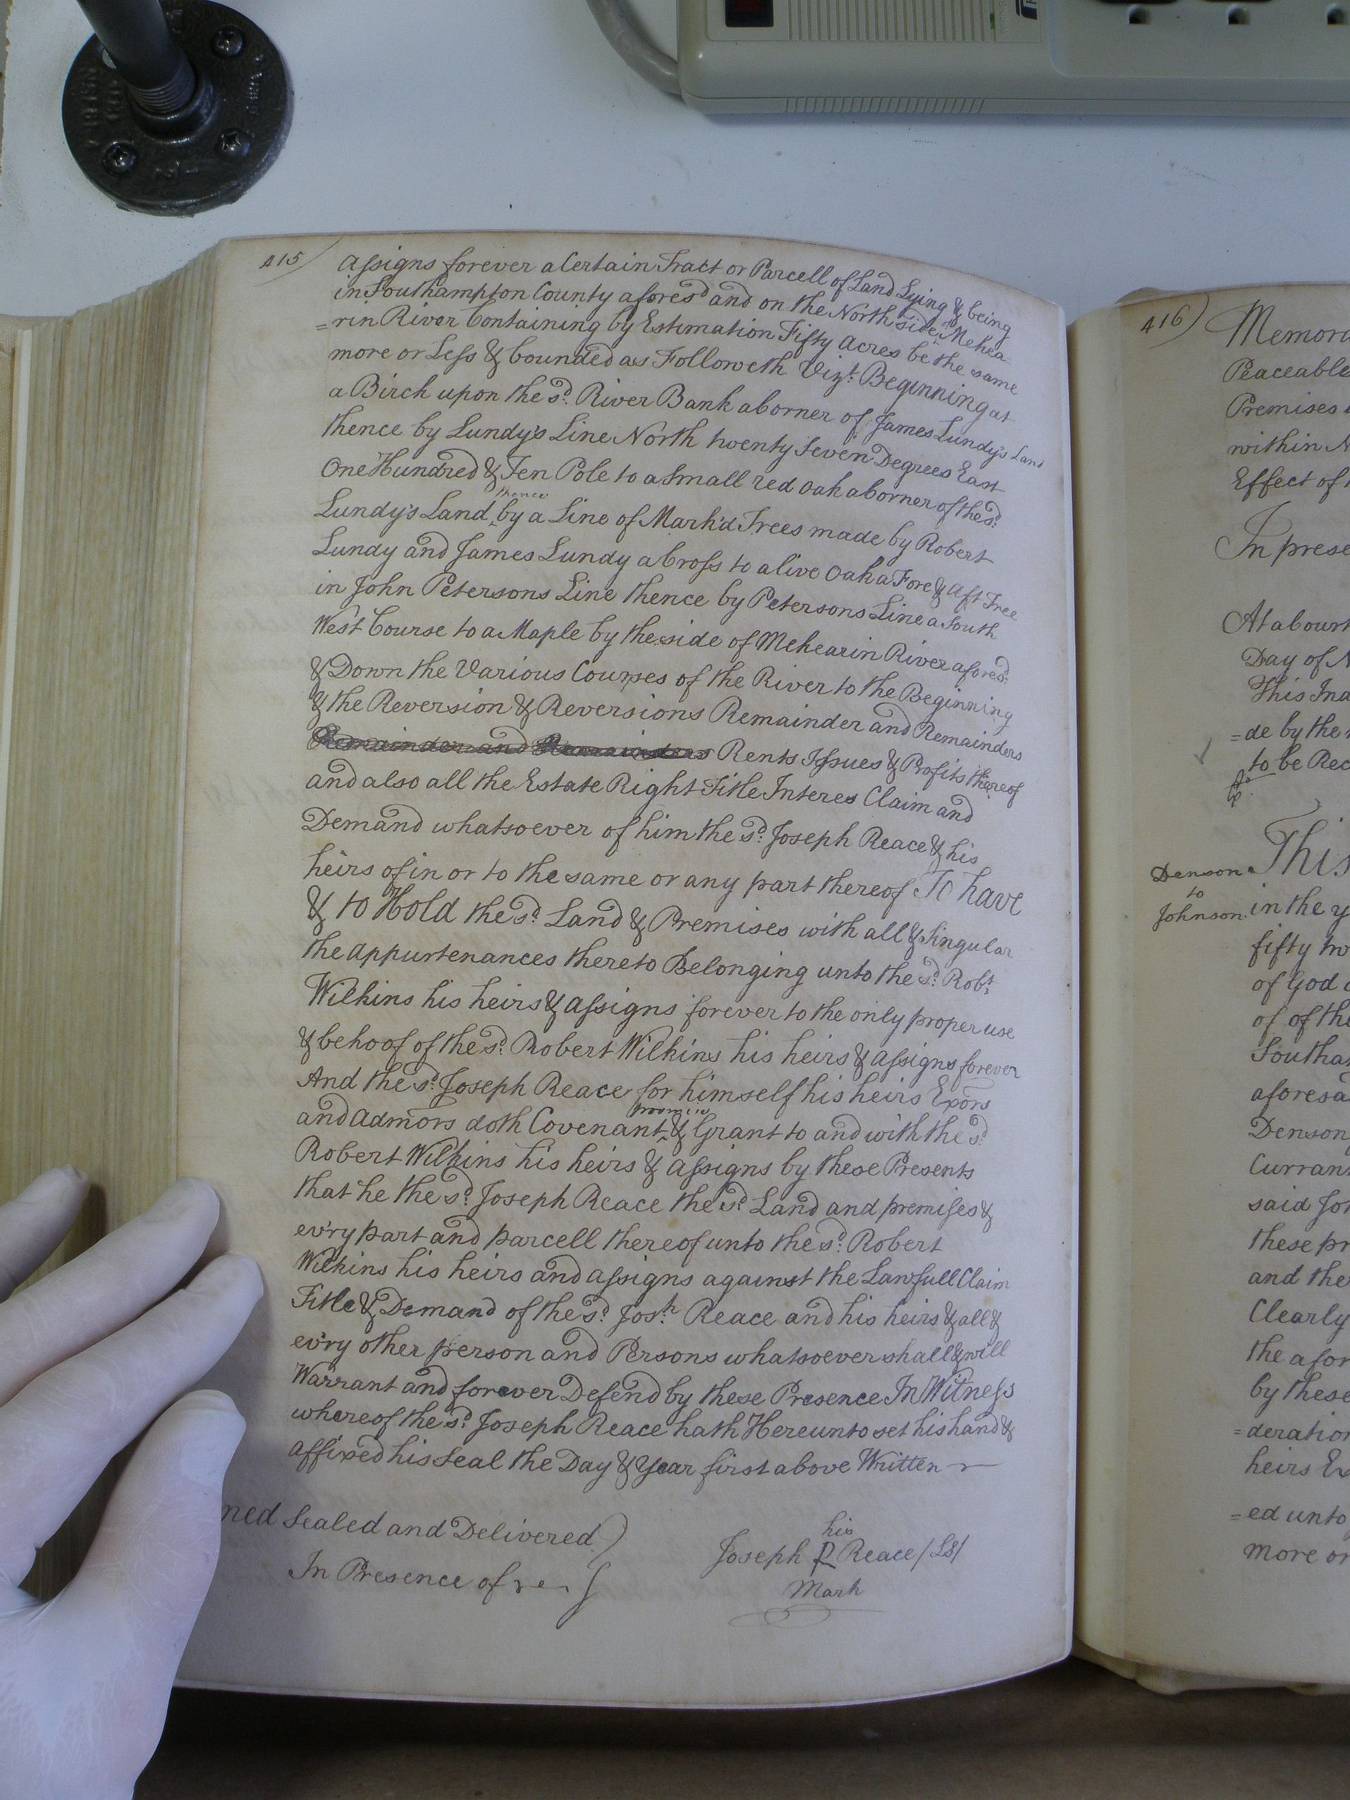 415
Assigns forever a Certain Tract or Parcell of Land Lying & being
in Southampton County afores.d and on the North side Mehea
=rin River Containing by Estimation Fifty Acres be the same
more or Less & bounded as Followeth Viz.t Beginning at
a Birch upon the s.d River Bank a Corner of James Lundy's Land
thence by Lundy's Line North twenty Seven Degrees East
One Hundred & Ten Pole to a Small red oak a Corner of the s.d
thence
Lundy's Land ‸ by a Line of Mark'd Trees made by Robert
Lundy and James Lundy a Cross to a live Oak a Fore & Aft Tree
in John Petersons Line thence by Petersons Line a South
West Course to a Maple by the side of Mehearin River afores.d
& Down the Various Courses of the River to the Beginning
& the Reversion & Reversions Remainder and Remainders
Remainder and Remainders Rents Issues & Profits thereof
and also all the Estate Right Title Interes Claim and
Demand whatsoever of him the s.d Joseph Reace & his
heirs of in or to the same or any part thereof To have
& to Hold the s.d Land & Premises with all & Singular
the Appurtenances thereto Belonging unto the s.d Rob.t
Wilkins his heirs & assigns forever to the only proper use
& behoof of the s.d Robert Wilkins his heirs & assigns forever
And the s.d Joseph Reace for himself his heirs Exors
promise
and Admors doth Covenant ‸ & Grant to and with the s.d
Robert Wilkins his heirs & assigns by these Presents
that he the s.d Joseph Reace the s.d Land and premises &
ev'ry part and parcell thereof unto the s.d Robert
Wilkins his heirs and assigns against the Lawfull Claim
Title & Demand of the s.d Jos.h Reace and his heirs & all &
ev'ry other person and Persons whatsoever shall & will
Warrant and forever Defend by these Presence In Witness
whereof the s.d Joseph Reace hath Hereunto set his hand &
affixed his Seal the Day & Year first above Written
ned Sealed and Delivered
In Presence of
his
Joseph R Reace /LS/
Mark
416
Memora
Peaceable
Premises
within
Effect of
In prese
At a Court
Day of N
This Ind
=de by the
to be Rec
Denson
to
Johnson
This
in the y
fifty
of God
of of the
Southa
aforesa
Denson
Curran
said Jo
these pr
and the
Clearly
the afor
by these
=deration
heirs Ex
=ed unto
more or